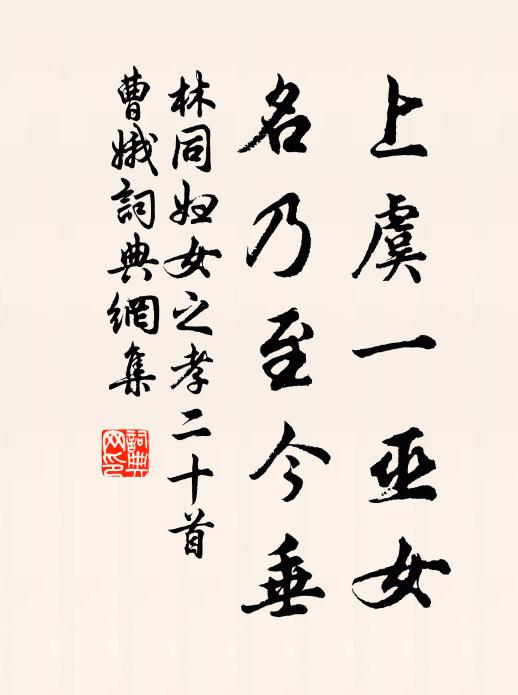 上虞一巫女
名乃至今垂
林同妇女之孝二十首
曹娥詞典網集
詞典网印